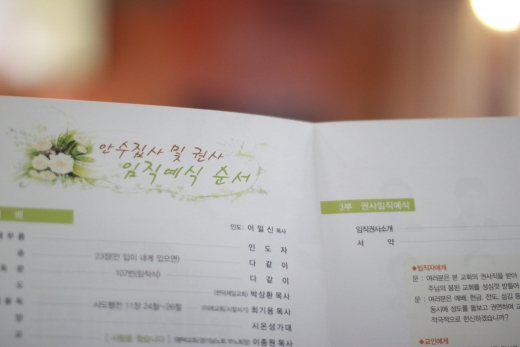 안수집사 및 권사
임직예식 순서
인도: 이 일 신 목사
인 도 자
23장(만 입이 내게 있으면)
다 같 이
107번(임직식)
다 같 이
박상환 목사
사도행전 11장 24절~26절
최기용 목사
시온성가대
이종원 목사
3부 권사임직예식
임직권사소개
서 약
●임직자에게
문 : 여러분은 본 교회의 권사직을 받아
주님의 몸된 교회를 성심껏 받들어
문 : 여러분은 예배, 헌금, 전도, 섬김 등
동시에 성도를 돌보고 권면하며 교
적극적으로 헌신하겠습니까?
●교인에게